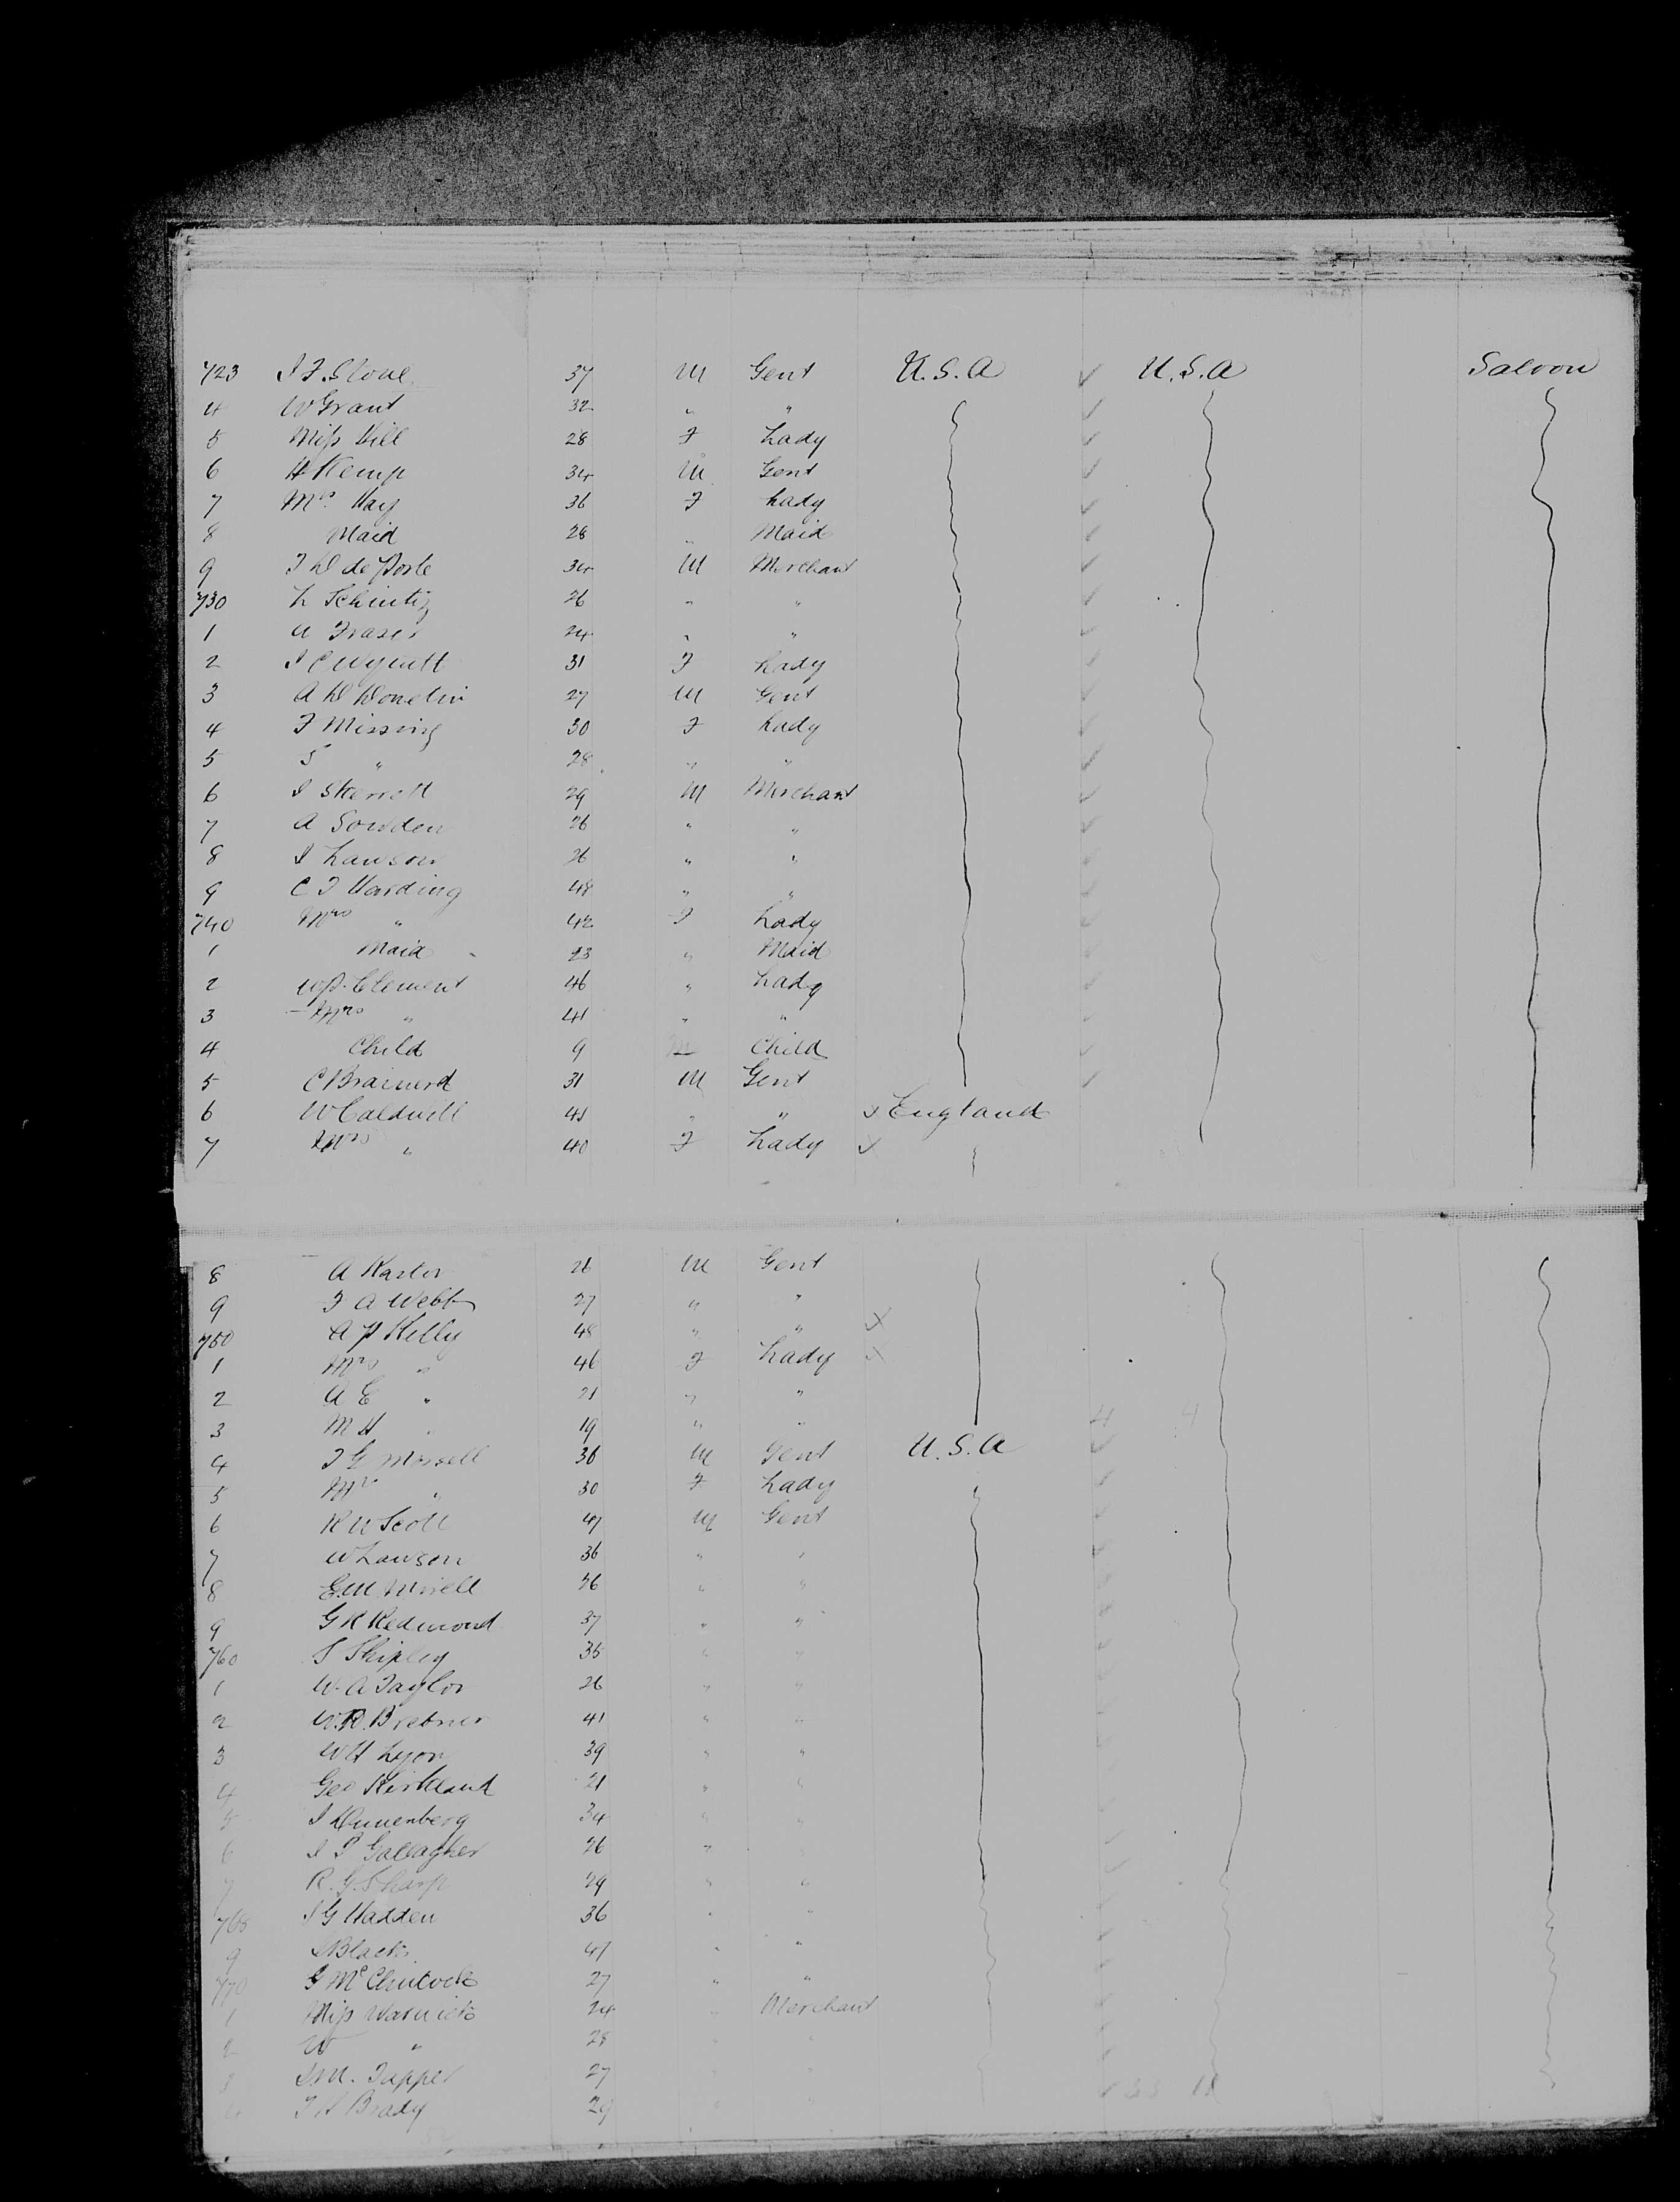 723 J F Stone 37 M Gent U.S.A U.S.A Saloon
4 W Grant 32 " "
5 Miss Hill 28 F Lady
6 H Kemp 34 M Gent
7 Mrs. Hay 36 F Lady
8 Maid 28 " Maid
9 de 34 M Merchant
730 L 26 " "
1 A Fraser 24 " "
2 31 F Lady
3 A D 27 M Gent
4 F Missing 30 F Lady
5 S " 28 " "
6 J Skerrett 29 M Merchant
7 A Sowden 26 " "
8 J Lawson 26 " "
9 C F Harding 48 " "
740 Mrs " 42 F Lady
1 Maid 23 " Maid
2 W P. Clement 46 " Lady
3 Mrs " 41 " "
4 Child 9 Child
5 C Brainerd 31 M Gent
6 W Caldwell 41 " " England
7 Mrs " 40 F Lady
8 A Karter 26 M Gent
9 F A Webb 27 " "
750 A P Kelly 48 " "
1 Mrs " 46 F Lady
2 A E " 21 " "
3 M H " 19 " "
4 F G Morsell 36 M Gent U.S.A
5 Mrs " 30 F Lady
6 R W Scott 47 M Gent
7 W Lawson 36 " "
8 26 " "
9 G R Redmond 37 " "
760 S Shipley 35 " "
1 W. A Taylor 26 " "
2 W. R. Brebner 41 " "
3 W H Lyon 39 " "
4 Geo Kirkland 21 " "
5 J 34 " "
6 J P Gallagher 26 " "
7 R. G. Sharp 29 " "
768 J G Hadden 36 " "
9 Black 47 " "
770 G McClintock 27 " "
1 Miss Warwick 24 " Merchant
2 W " 28
J M. Tapper 27
F H Brady 29